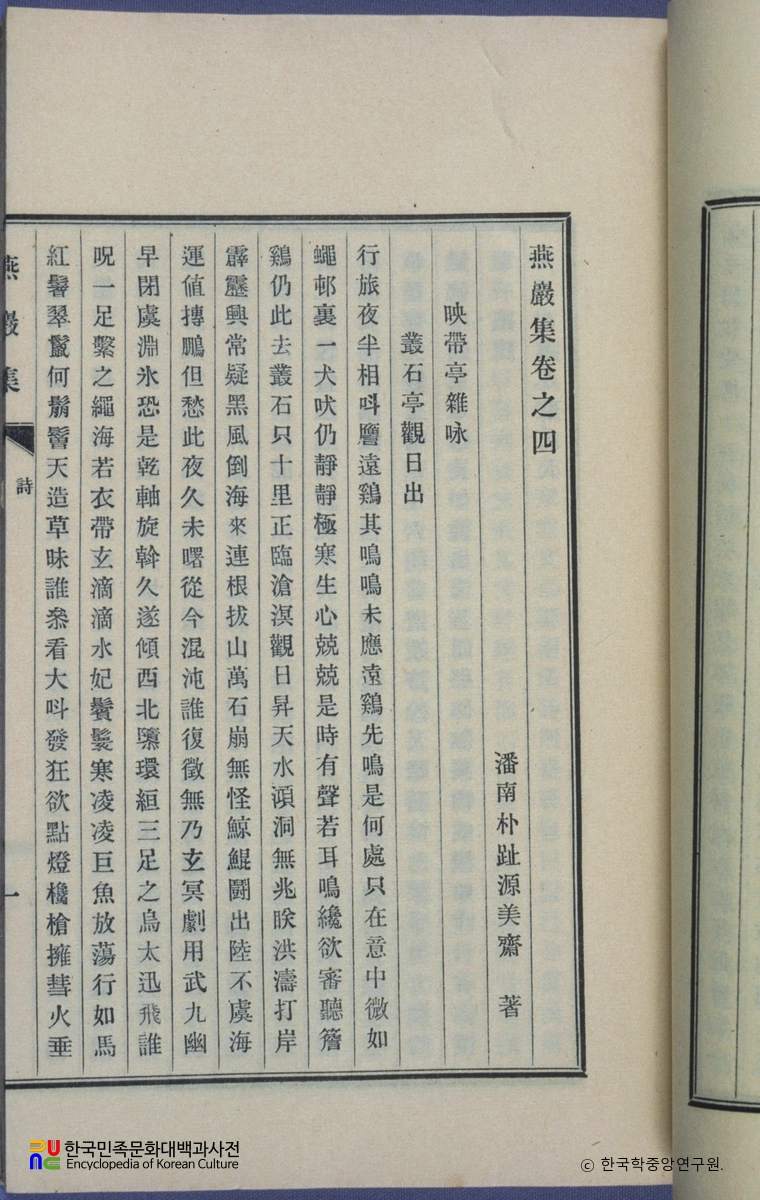 燕巖集卷之四
潘南朴趾源美齋 著
映帶亭雜咏
叢石亭觀日出
行旅夜半相呌譍遠鷄其鳴鳴未應遠鷄先鳴是何處只在意中微如
蠅邨裏一犬吠仍靜靜極寒生心兢兢是時有聲若耳鳴纔欲審聽簷
鷄仍此去叢石只十里正臨滄溟觀日昇天水澒洞無兆眹洪濤打岸
霹靂興常疑黑風倒海來連根拔山萬石崩無怪鯨鯤鬪出陸不虞海
運値摶鵬但愁此夜久未曙從今混沌誰復徵無乃玄冥劇用武九幽
早閉虞淵氷恐是乾軸旋斡久遂傾西北隳環絙三足之烏太迅飛誰
呪一足繫之繩海若衣帶玄滴滴水妃鬢鬟寒凌凌巨魚放蕩行如馬
紅鬐翠鬣何鬅鬙天造草昧誰叅看大呌發狂欲點燈欃槍擁彗火垂
燕巖集
詩
一
한국민족문화대백과사전
Encyclopedia of Korean Culture
© 한국학중앙연구원.